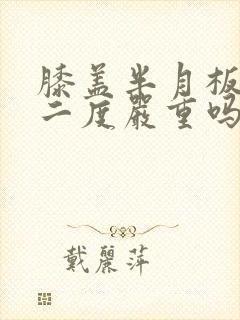 膝盖半月板
二度嚴重吗
戴麗萍